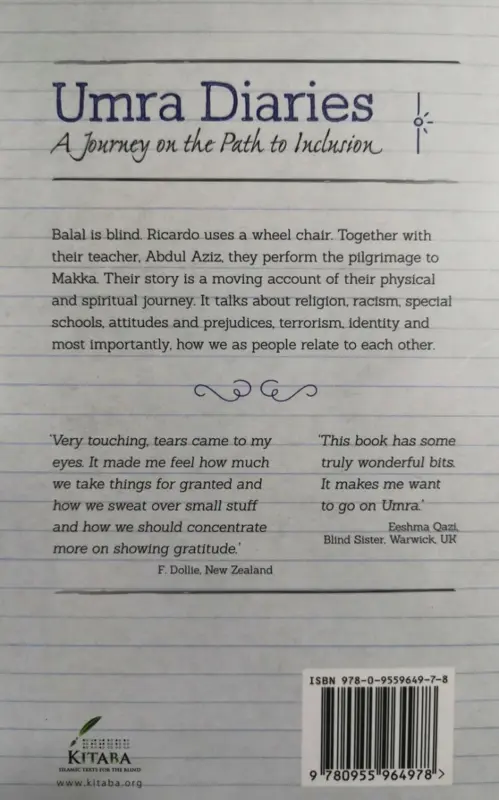 Umra Diaries
A Journey on the Path to Inclusion
Balal is blind. Ricardo uses a wheel chair. Together with
their teacher, Abdul Aziz, they perform the pilgrimage to
Makka. Their story is a moving account of their physical
and spiritual journey. It talks about religion, racism, special
schools, attitudes and prejudices, terrorism, identity and
most importantly, how we as people relate to each other.
'Very touching, tears came to my
eyes. It made me feel how much
we take things for granted and
how we sweat over small stuff
and how we should concentrate
more on showing gratitude.'
F. Dollie, New Zealand
'This book has some
truly wonderful bits.
It makes me want
to go on Umra.'
Eeshma Qazi,
Blind Sister, Warwick, UK
ISBN 978-0-9559649-7-8
9 780955 964978 >
KITABA
ISLAMIC TEXTS FOR THE BLIND
www.kitaba.org